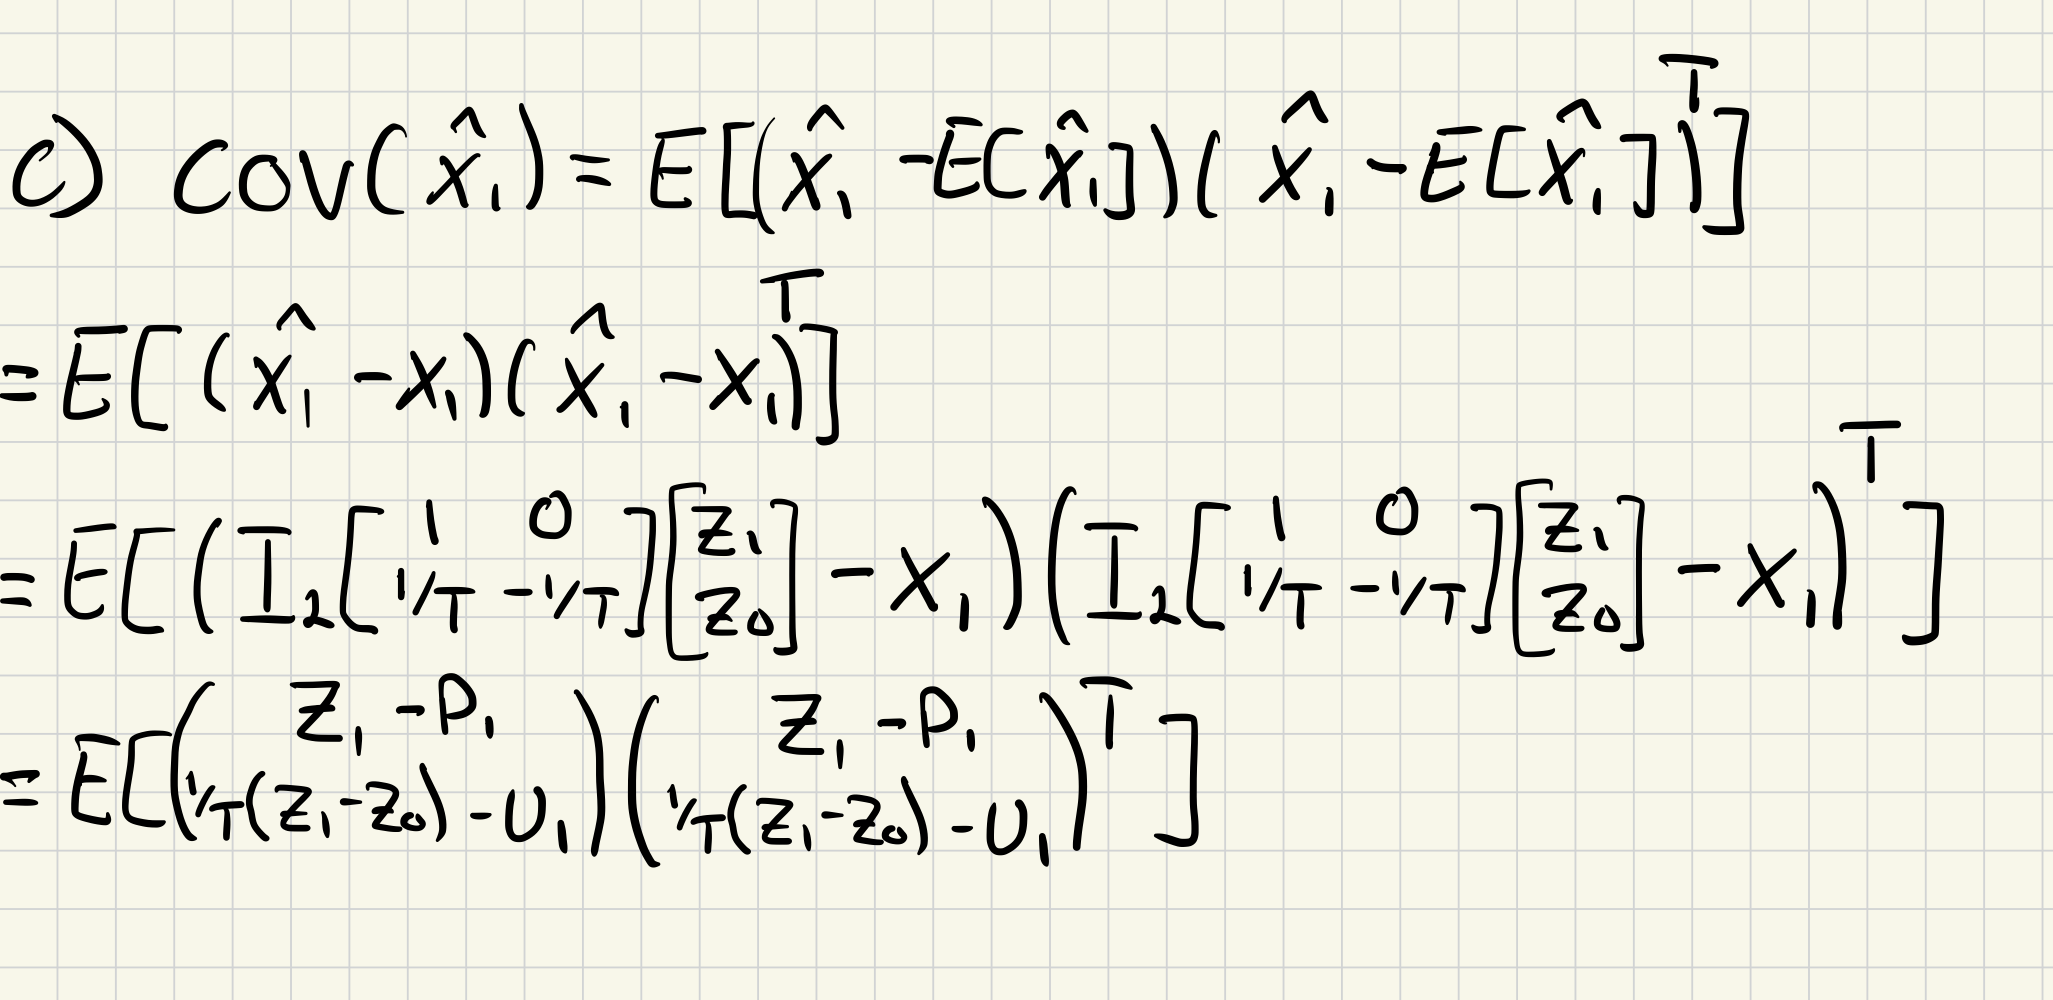 c) cov(x̂₁) = E[(x̂₁ - E[x̂₁])(x̂₁ - E[x̂₁])ᵀ]
= E[(x̂₁ - x₁)(x̂₁ - x₁)ᵀ]
= E[(I₂ [1 0; 1/T -1/T] [z₁; z₀] - x₁)(I₂ [1 0; 1/T -1/T] [z₁; z₀] - x₁)ᵀ]
= E[(z₁ - p₁; 1/T(z₁ - z₀) - u₁)(z₁ - p₁; 1/T(z₁ - z₀) - u₁)ᵀ]